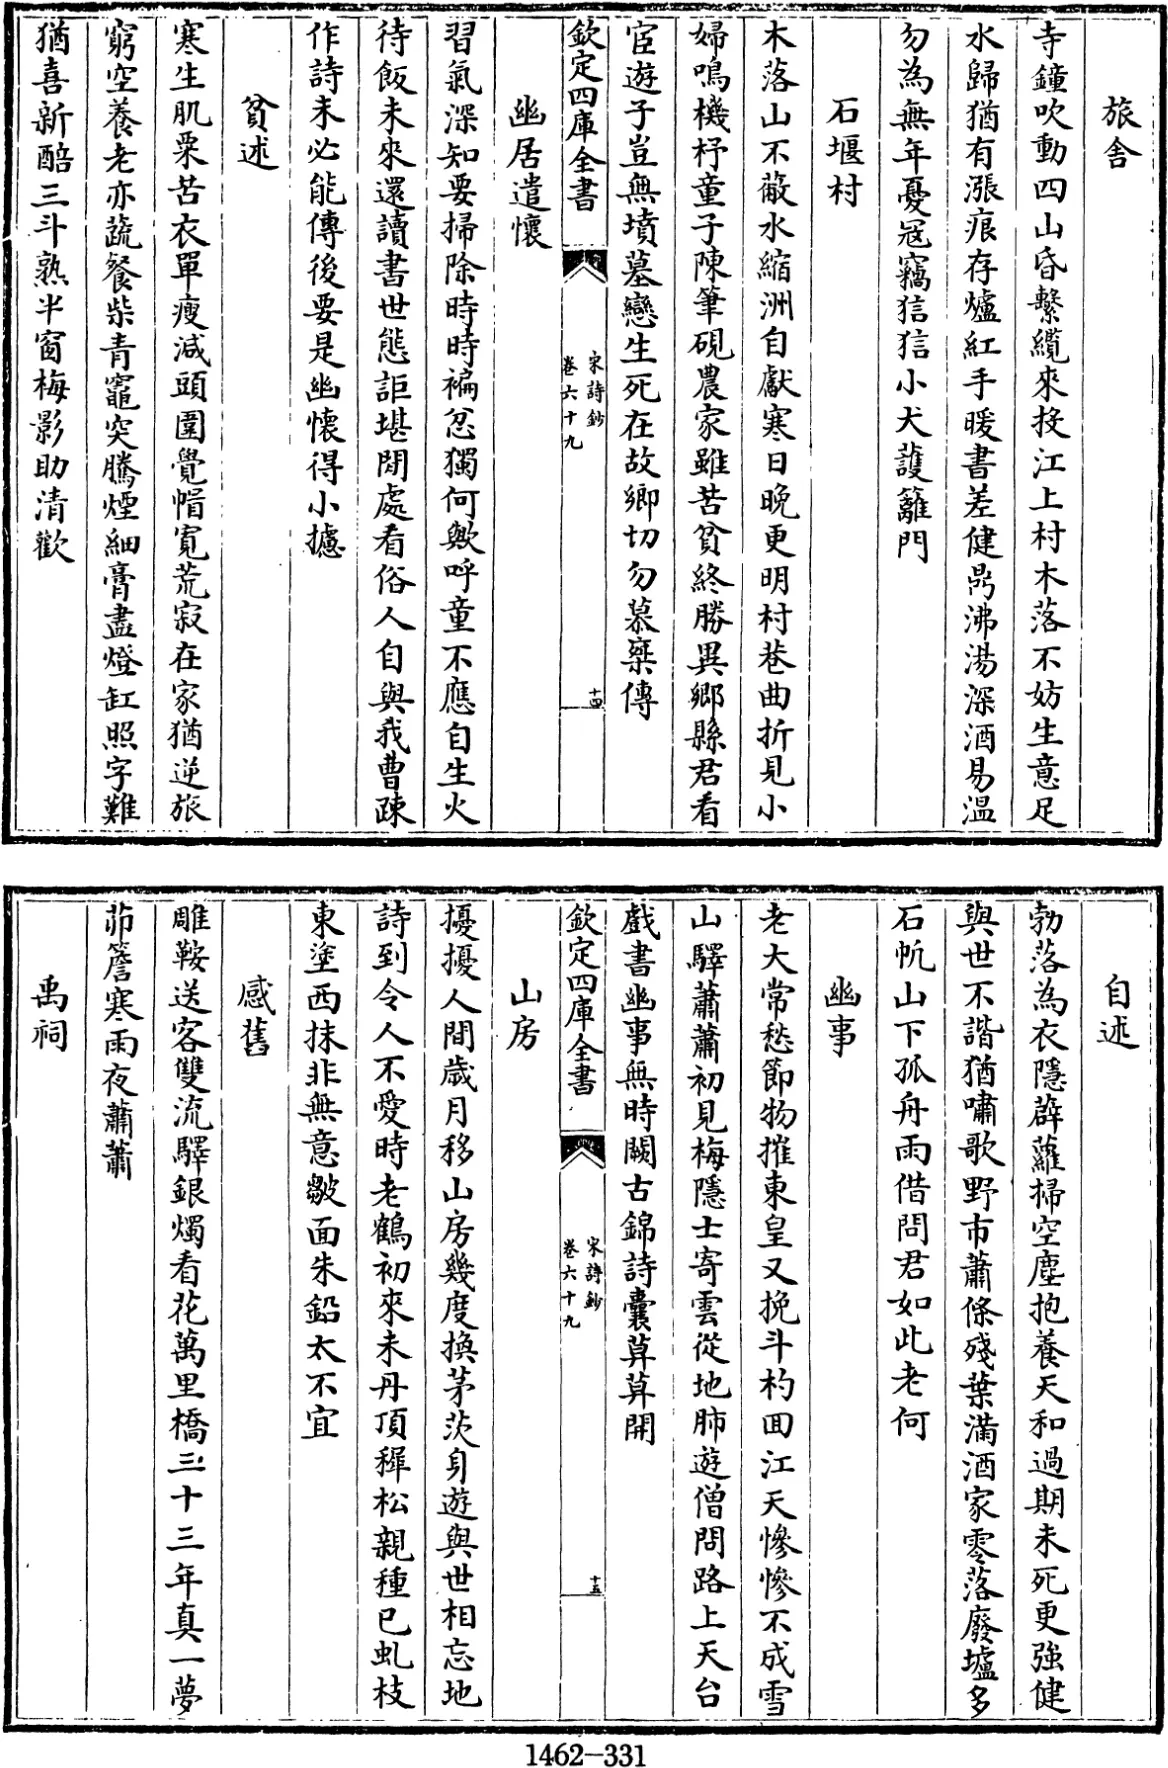 旅舎
寺鐘吹動四山昏繫纜來投江上村木落不妨生意足
水歸猶有漲痕存爐紅手暖書差健鼎沸湯深酒易温
勿為無年憂冦竊狺狺小犬護籬門
石堰村
木落山不蔽水縮洲自獻寒日晚更明村巷曲折見小
婦鳴機杼童子陳筆硯農家雖苦貧終勝異鄉縣君看
宦遊子豈無墳墓戀生死在故鄉切勿慕乘傳
欽定四庫全書
宋詩鈔
卷六十九
十四
幽居遣懷
習氣深知要掃除時時褊忿獨何歟呼童不應自生火
待飯未來還讀書世態詎堪閒處看俗人自與我曹疎
作詩未必能傳後要是幽懷得小攄
貧述
寒生肌粟苦衣單瘦減頭圍覺帽寛荒寂在家猶逆旅
窮空養老亦蔬餐柴青竈突騰煙細膏盡燈缸照字難
猶喜新醅三斗熟半窗梅影助清歡
自述
勃落為衣隱薜蘿掃空塵抱養天和過期未死更強健
與世不諧猶嘯歌野市蕭條殘葉滿酒家零落廢壚多
石帆山下孤舟雨借問君如此老何
幽事
老大常愁節物摧東皇又挽斗杓囬江天慘慘不成雪
山驛蕭蕭初見梅隱士寄雲從地肺遊僧問路上天台
戲書幽事無時闕古錦詩囊草草開
欽定四庫全書
宋詩鈔
卷六十九
十五
山房
擾擾人間歲月移山房幾度換茅茨身遊與世相忘地
詩到令人不愛時老鶴初來未丹頂穉松親種已虬枝
東塗西抹非無意皺面朱鉛太不宜
感舊
雕鞍送客雙流驛銀燭看花萬里橋三十三年真一夢
茆簷寒雨夜蕭蕭
禹祠
1462-331